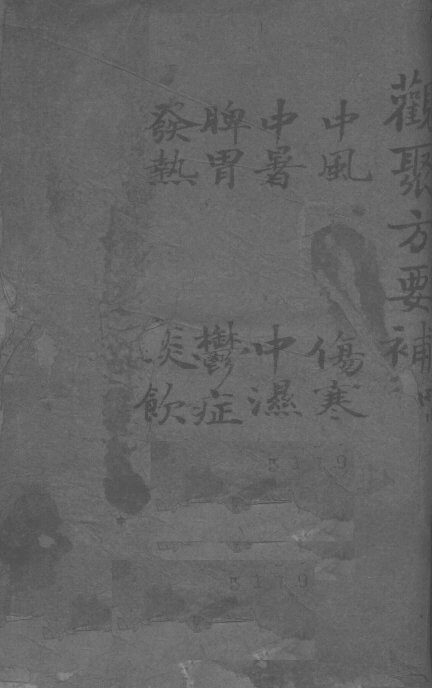 觀聚方要補
中風 傷寒
中暑 中濕
脾胃 鬱症
發熱 痰飲